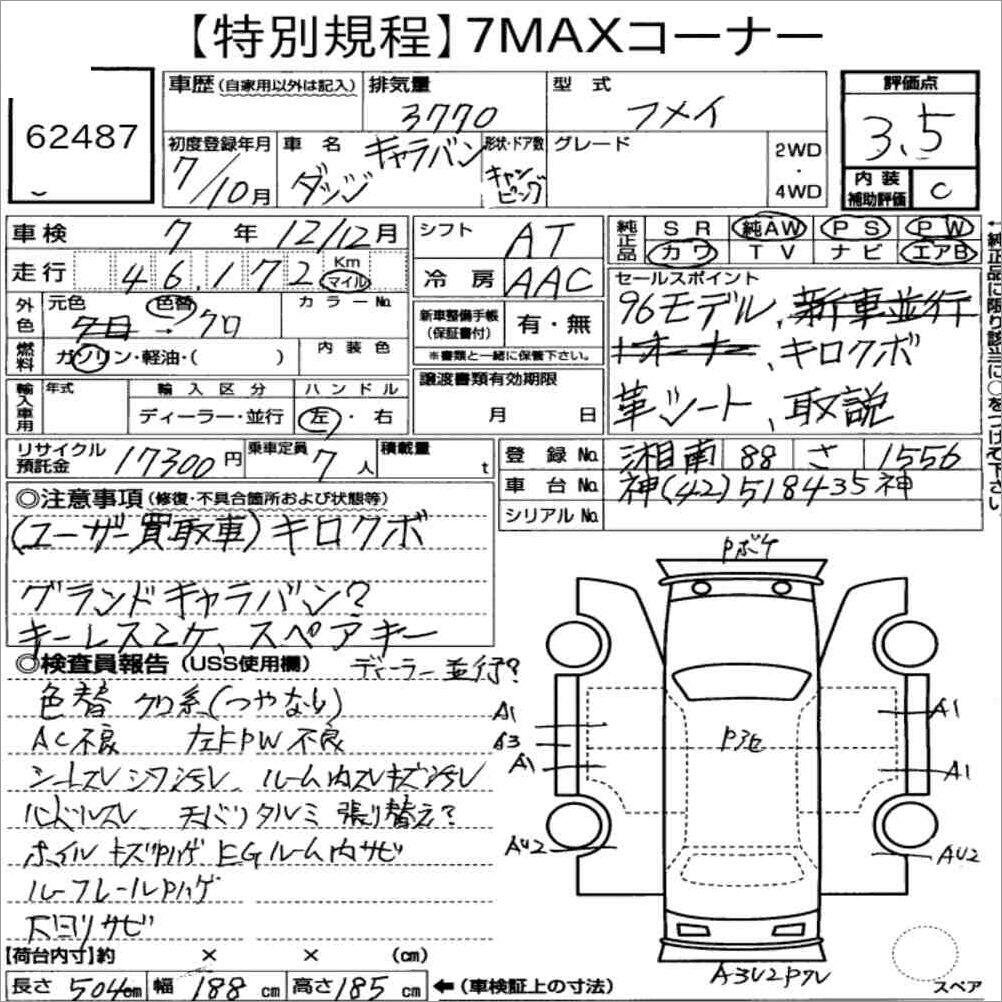 【特別規程】7MAXコーナー
62487
車歴(自家用以外は記入) 排気量 型式
3770 フメイ
初度登録年月 車名 形状・ドア数 グレード
7/10月 ダッジ キャラバン キャンピング
2WD
・
4WD
評価点
3.5
内装
補助評価 C
車検 7年 12/12月
走行 46,172 Km マイル
外色 元色 色替 カラーNo.
→クロ
燃料 ガソリン・軽油・( ) 内装色
輸入車用 年式 輸入区分 ハンドル
ディーラー・並行 左・右
リサイクル
預託金 17300円 乗車定員 7人 積載量 t
シフト AT
冷房 AAC
新車整備手帳
(保証書付) 有・無
※書類と一緒に保管下さい。
譲渡書類有効期限
月 日
純正品 SR 純AW PS PW
カワ TV ナビ エアB
←純正品に限り該当に○をつけて下さい
セールスポイント
96モデル、新車並行
1オーナー、キロクボ
革シート、取説
登録No. 湘南 88 さ 1556
車台No. 神(42)518435神
シリアルNo.
◎注意事項(修復・不具合箇所および状態等)
(ユーザー買取車)キロクボ
グランドキャラバン?
キーレス2ケ、スペアキー
◎検査員報告(USS使用欄) ディーラー並行?
色替 クロ系(つやなし)
AC不良 左FPW不良
シートスレシワ汚レ ルーム内スレキズ汚レ
ハンドルスレ 天バリタルミ張り替え?
ホイルキズPハゲ EGルーム内サビ
ルーフレールPハゲ
下回リサビ
Pボケ
A1
A3
A1
AU2
P3セ
A1
A1
AU2
A3U2Pワレ
スペア
【荷台内寸】約 × × (cm)
長さ 504cm 幅 188cm 高さ 185cm ←(車検証上の寸法)